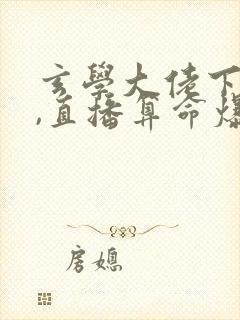 玄學大佬下
,直播算命爆
房媳